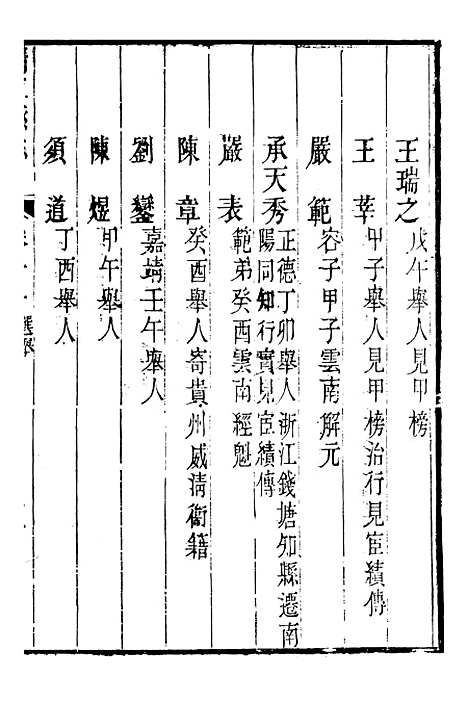 王瑞之 戊午舉人見甲榜
王莘 甲子舉人見甲榜治行見宦績傳
嚴範 容子甲子雲南解元
承天秀 正德丁卯舉人浙江錢塘知縣遷南
陽同知行實見宦績傳
嚴表 範弟癸酉雲南經魁
陳章 癸酉舉人寄貴州威清衞籍
劉鑾 嘉靖壬午舉人
陳煜 甲午舉人
須道 丁酉舉人
選舉